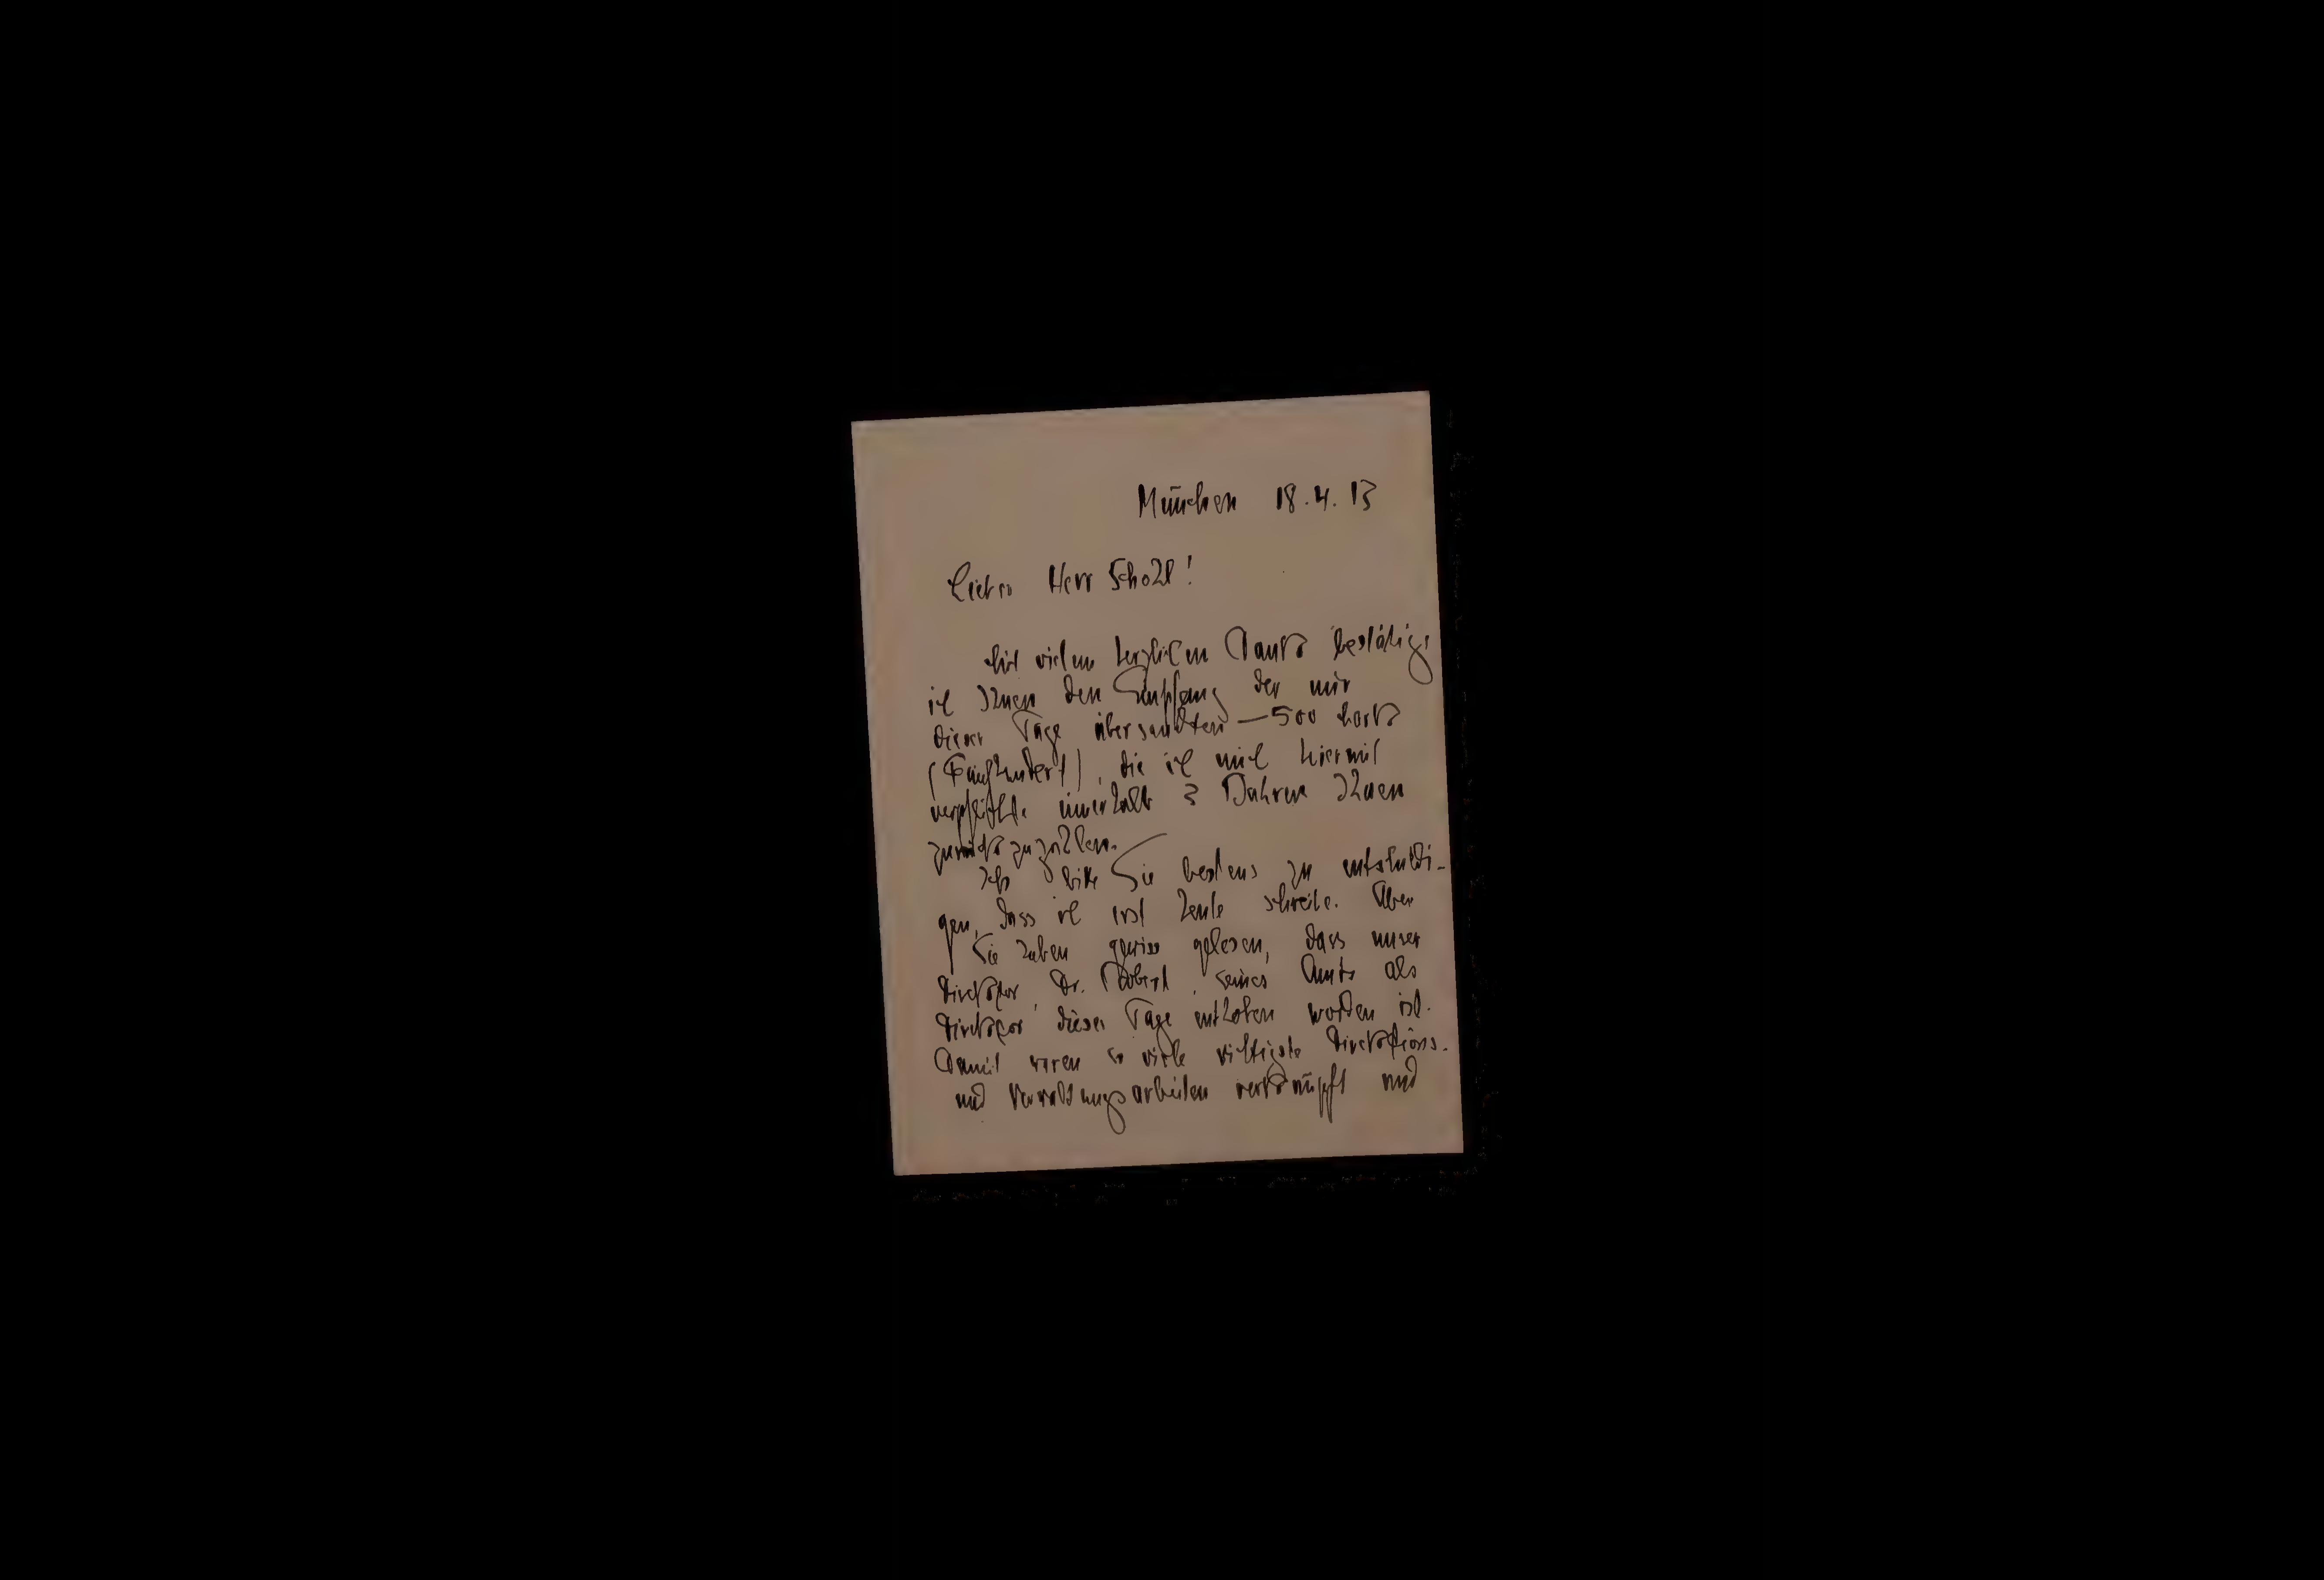 München 18.4.13
Lieber Herr Scholl!
Mit vielem herzlichem Dank bestätige
ich Ihnen den Empfang der mir
dieser Tage übersandten – 500 Mark
(Fünfhundert), die ich mich hiermit
verpflichte innerhalb 3 Jahren Ihnen
zurückzuzahlen.
Ich bitte Sie bestens zu entschuldi-
gen, dass ich erst heute schreibe. Aber
Sie haben gewiss gelesen, dass unser
Direktor, Dr. Robert, seines Amts als
Direktor dieser Tage enthoben worden ist.
Damit waren so viele wichtigste Direktions-
und Verwaltungsarbeiten verknüpft und